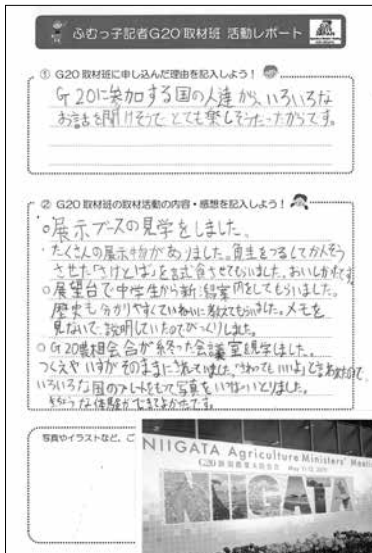 ふむっ子記者G20取材班 活動レポート
① G20取材班に申し込んだ理由を記入しよう！
G20に参加する国の人達から、いろいろな
お話を聞けそうで、とても楽しそうだったからです。
② G20取材班の取材活動の内容・感想を記入しよう！
○展示ブースの見学をしました。
たくさんの展示物がありました。角生をつるしてかんそう
させた「さけとば」を試食させてもらいました。おいしかったです。
○展望台で中学生から新潟案内をしてもらいました。
歴史も分かりやすくていねいに教えてもらいました。メモを
見ないで説明していたのでびっくりしました。
○G20農相会合が終った会議室を見学しました。
つくえやいすがそのままにされていました。「さわってもいいよ」と言われたので、
いろいろな国のプレートをもって写真をいっぱいとりました。
きちょうな体験ができてよかったです。
写真やイラストなど、ご
NIIGATA Agriculture Ministers' Meeti
G20
May 11-12, 2019
NIIGATA